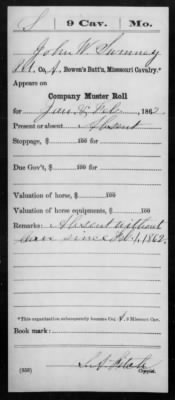 S | 9 Cav. | Mo.
John W. Sumney
Co. A, Bowen's Batt'n, Missouri Cavalry.*
Appears on
Company Muster Roll
for Jan & Feb, 1862.
Present or absent Absent
Stoppage, $ 100 for
Due Gov't, $ 100 for
Valuation of horse, $ 100
Valuation of horse equipments, $ 100
Remarks: Absent without
leave since Feb 1, 1862.
*This organization subsequently became Co. A, 9 Missouri Cav.
Book mark:
(858)
Copyist.